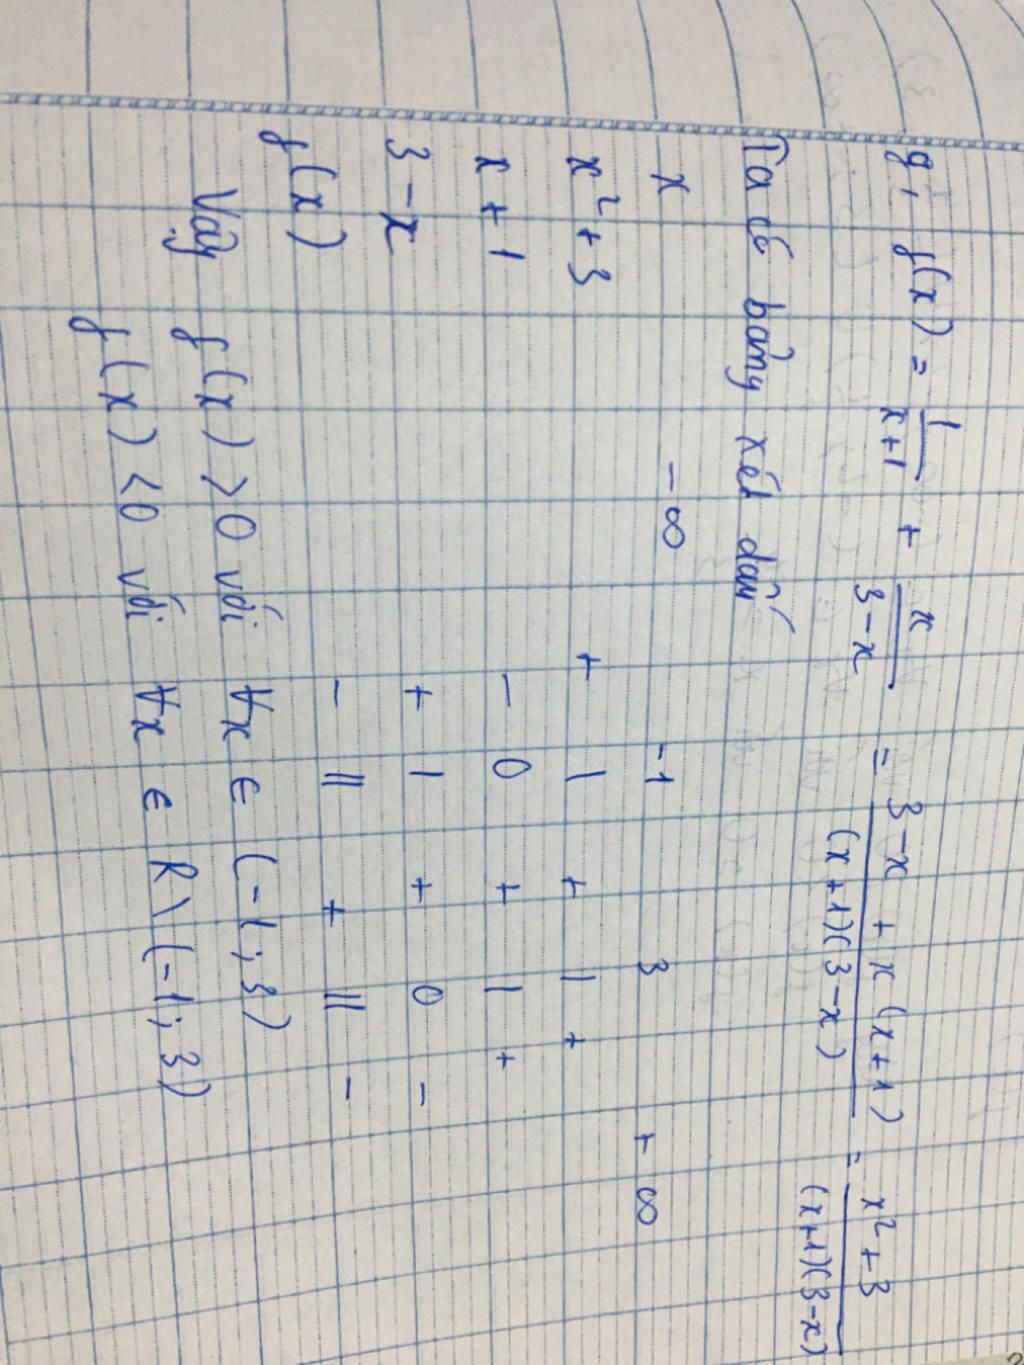 g, f(x) = 1/(x+1) + x/(3-x) = (3-x + x(x+1))/((x+1)(3-x)) = (x²+3)/((x+1)(3-x))
Ta có bảng xét dấu
x -∞ -1 3 +∞
x²+3 + | + | +
x+1 - 0 + | +
3-x + | + 0 -
f(x) - || + || -
Vậy f(x) >0 với ∀x ∈ (-1;3)
f(x) <0 với ∀x ∈ R\(-1;3)